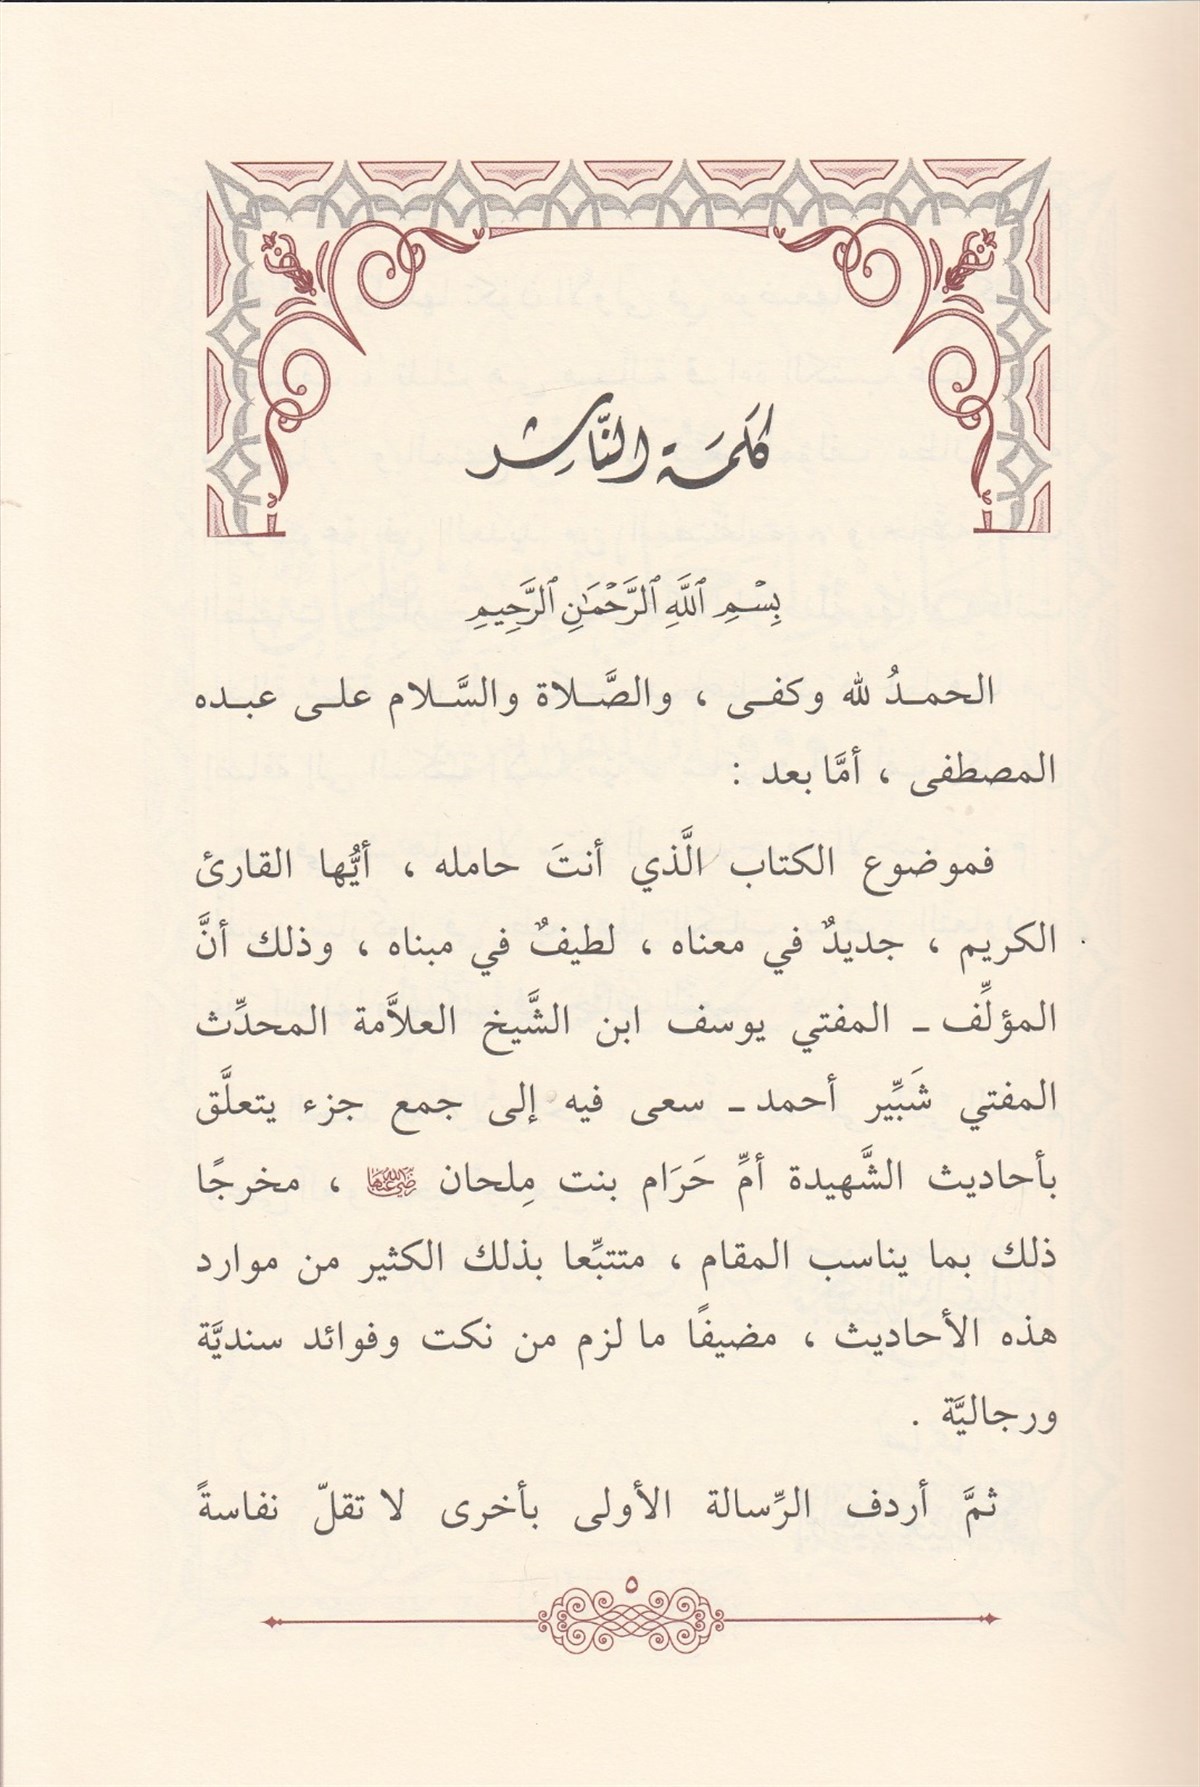 كلمة النَّاشِر
بِسْمِ ٱللَّهِ ٱلرَّحْمَٰنِ ٱلرَّحِيمِ
الحمدُ لله وكفى ، والصَّلاة والسَّلام على عبده
المصطفى ، أمَّا بعد :
فموضوع الكتاب الَّذي أنتَ حامله ، أيُّها القارئ
الكريم ، جديدٌ في معناه ، لطيفٌ في مبناه ، وذلك أنَّ
المؤلِّف ـ المفتي يوسف ابن الشَّيخ العلاَّمة المحدِّث
المفتي شَبِّير أحمد ـ سعى فيه إلى جمع جزء يتعلَّق
بأحاديث الشَّهيدة أمِّ حَرَام بنت مِلحان رضي الله عنها ، مخرجًا
ذلك بما يناسب المقام ، متتبِّعا بذلك الكثير من موارد
هذه الأحاديث ، مضيفًا ما لزم من نكت وفوائد سنديَّة
ورجاليَّة .
ثمَّ أردف الرِّسالة الأولى بأخرى لا تقلّ نفاسةً
٥